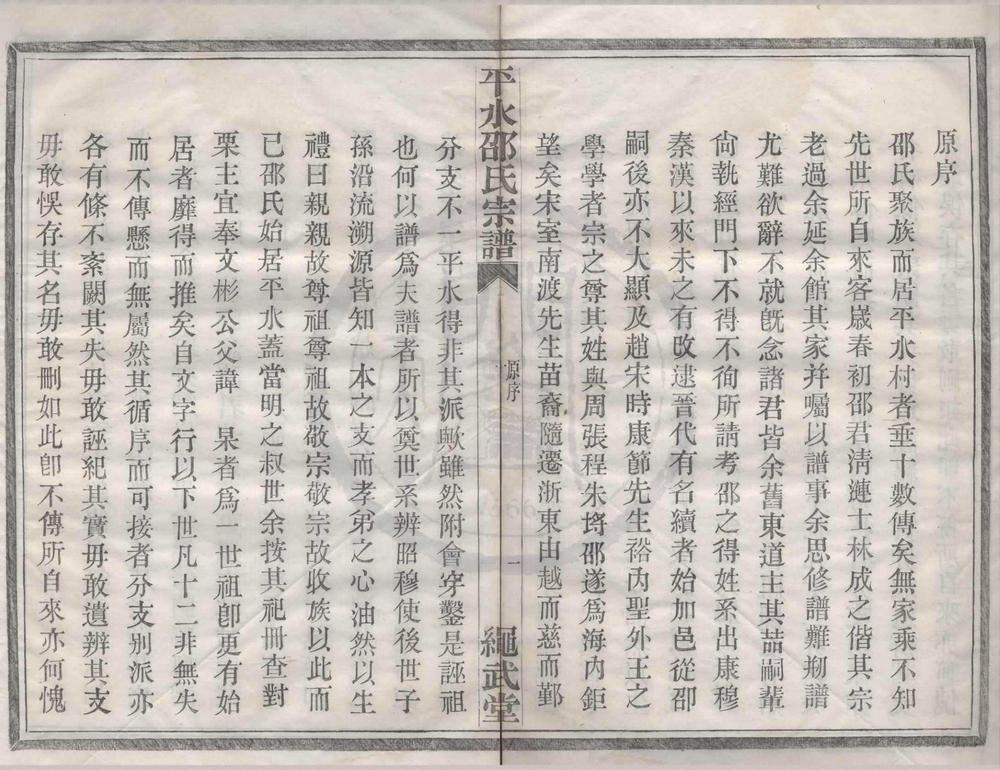 原序
邵氏聚族而居平水村者垂十數傳矣無家乘不知
先世所自來客歲春初邵君淸漣士林成之偕其宗
老過余延余館其家并囑以譜事余思修譜難剏譜
尤難欲辭不就旣念諸君皆余舊東道主其喆嗣輩
尙執經門下不得不徇所請考邵之得姓系出康穆
秦漢以來未之有改逮晉代有名續者始加邑從邵
嗣後亦不大顯及趙宋時康節先生裕內聖外王之
學學者宗之尊其姓與周張程朱埒邵遂爲海內鉅
望矣宋室南渡先生苗裔隨遷浙東由越而慈而鄞
平水邵氏宗譜
原序
一
繩武堂
分支不一平水得非其派歟雖然附會穿鑿是誣祖
也何以譜爲夫譜者所以奠世系辨昭穆使後世子
孫沿流溯源皆知一本之支而孝弟之心油然以生
禮曰親親故尊祖尊祖故敬宗敬宗故收族以此而
已邵氏始居平水蓋當明之叔世余按其祀冊查對
栗主宜奉文彬公父諱 杲者爲一世祖卽更有始
居者靡得而推矣自文字行以下世凡十二非無失
而不傳懸而無屬然其循序而可接者分支别派亦
各有條不紊闕其失毋敢誣紀其實毋敢遺辨其支
毋敢悞存其名毋敢刪如此卽不傳所自來亦何愧